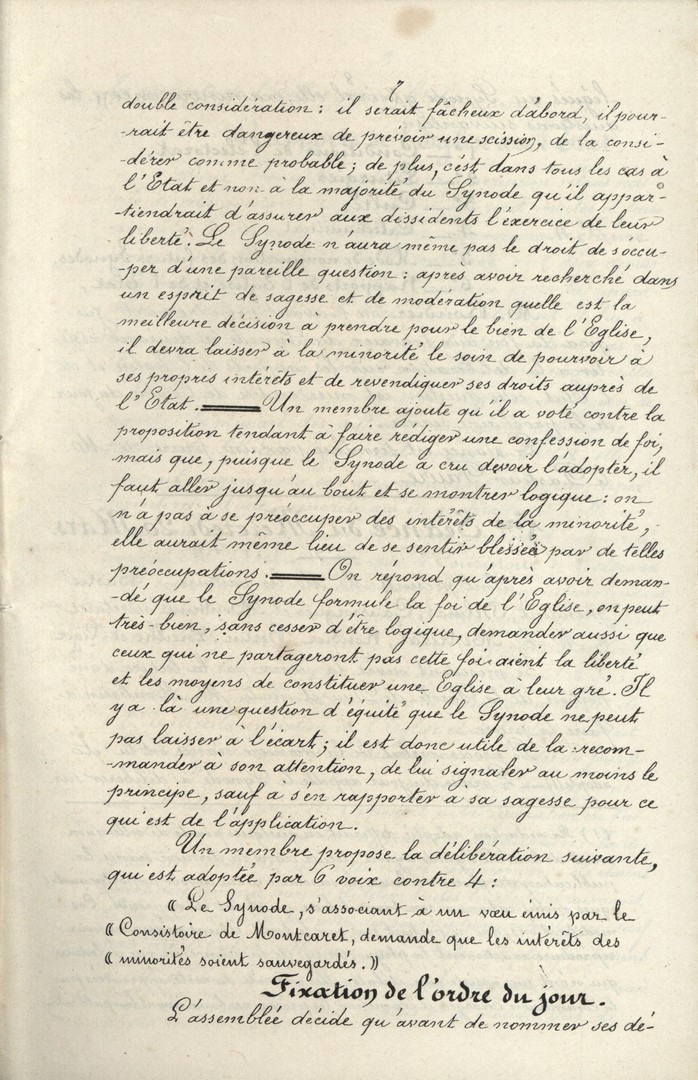 7
double considération : il serait fâcheux d'abord, il pour-
-rait être dangereux de prévoir une scission, de la consi-
-dérer comme probable ; de plus, c'est dans tous les cas à
l'Etat et non à la majorité du Synode qu'il appar-
-tiendrait d'assurer aux dissidents l'exercice de leur
liberté. Le Synode n'aura même pas le droit de s'occu-
-per d'une pareille question : après avoir recherché dans
un esprit de sagesse et de modération quelle est la
meilleure décision à prendre pour le bien de l'Eglise,
il devra laisser à la minorité le soin de pourvoir à
ses propres intérêts et de revendiquer ses droits auprès de
l'Etat. ═══ Un membre ajoute qu'il a voté contre la
proposition tendant à faire rédiger une confession de foi,
mais que, puisque le Synode a cru devoir l'adopter, il
faut aller jusqu'au bout et se montrer logique : on
n'a pas à se préoccuper des intérêts de la minorité,
elle aurait même lieu de se sentir blessée par de telles
préoccupations. ═══ On répond qu'après avoir deman-
-dé que le Synode formule la foi de l'Eglise, on peut
très-bien, sans cesser d'être logique, demander aussi que
ceux qui ne partageront pas cette foi aient la liberté
et les moyens de constituer une Eglise à leur gré. Il
y a là une question d'équité que le Synode ne peut
pas laisser à l'écart ; il est donc utile de la recom-
-mander à son attention, de lui signaler au moins le
principe, sauf à s'en rapporter à sa sagesse pour ce
qui est de l'application.
Un membre propose la délibération suivante,
qui est adoptée par 6 voix contre 4 :
« Le Synode, s'associant à un vœu émis par le
« Consistoire de Montcaret, demande que les intérêts des
« minorités soient sauvegardés. »
Fixation de l'ordre du jour.
L'assemblée décide qu'avant de nommer ses dé-